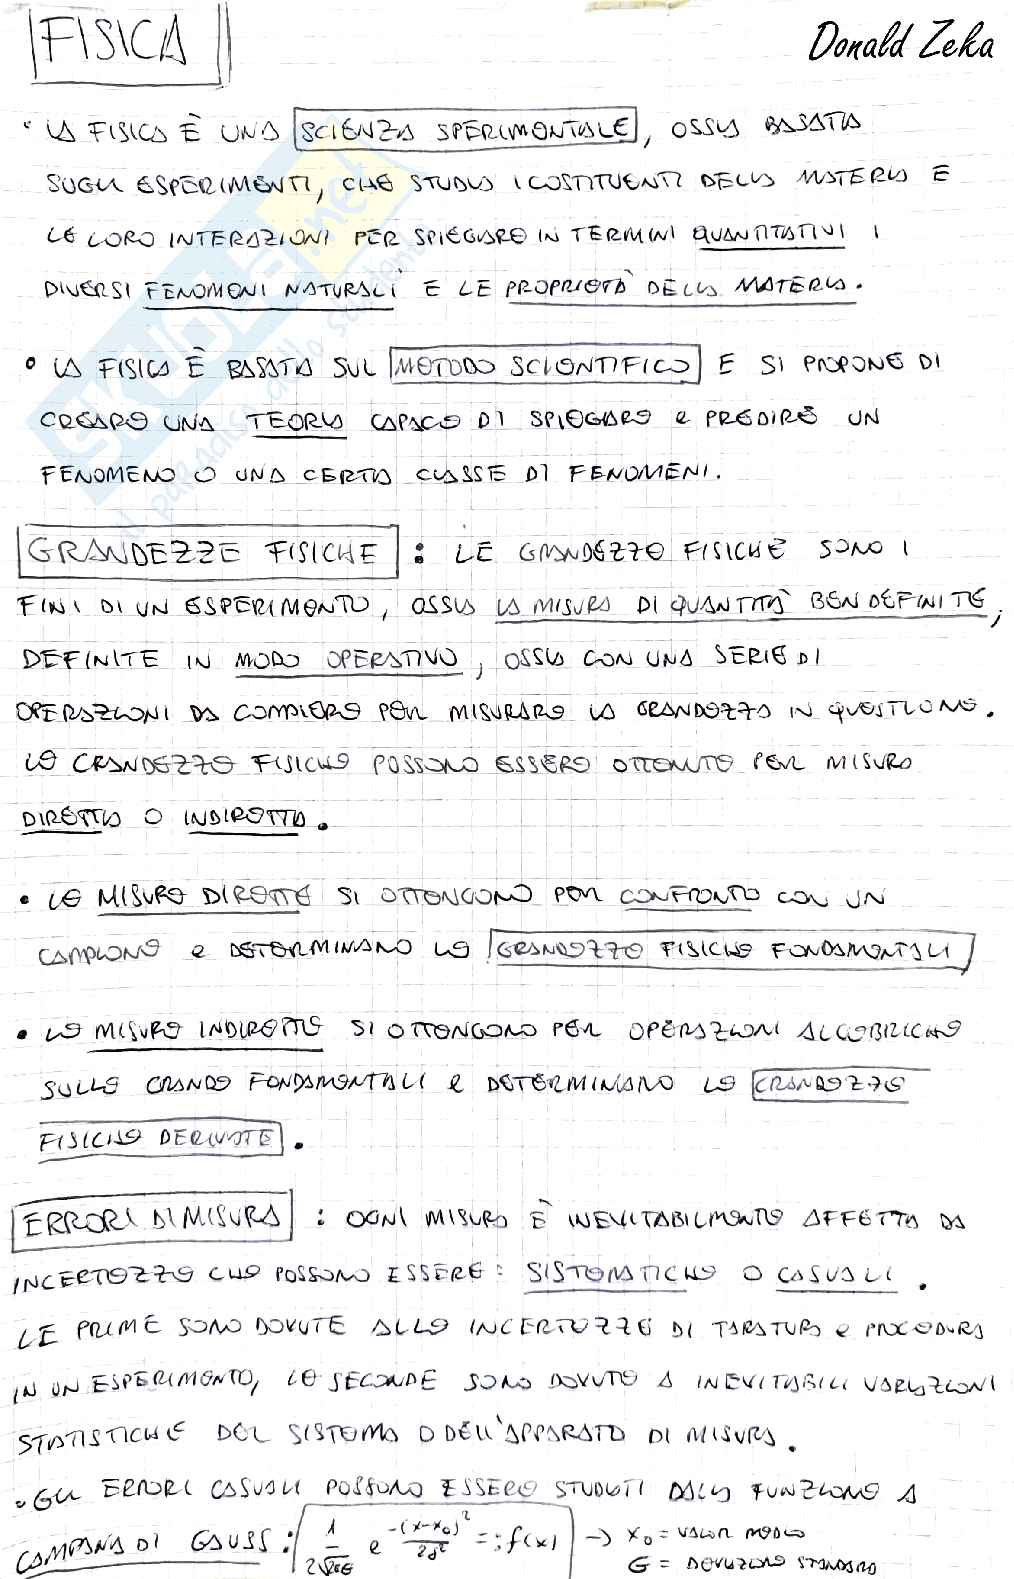 FISICA
Donald Zeka
• LA FISICA È UNA SCIENZA SPERIMENTALE, OSSIA BASATA
SUGLI ESPERIMENTI, CHE STUDIA I COSTITUENTI DELLA MATERIA E
LE LORO INTERAZIONI PER SPIEGARE IN TERMINI QUANTITATIVI I
DIVERSI FENOMENI NATURALI E LE PROPRIETÀ DELLA MATERIA.
• LA FISICA È BASATA SUL METODO SCIENTIFICO E SI PROPONE DI
CREARE UNA TEORIA CAPACE DI SPIEGARE e PREDIRE UN
FENOMENO O UNA CERTA CLASSE DI FENOMENI.
GRANDEZZE FISICHE : LE GRANDEZZE FISICHE SONO I
FINI DI UN ESPERIMENTO, OSSIA LA MISURA DI QUANTITÀ BEN DEFINITE,
DEFINITE IN MODO OPERATIVO, OSSIA CON UNA SERIE DI
OPERAZIONI DA COMPIERE PER MISURARE LA GRANDEZZA IN QUESTIONE.
LE GRANDEZZE FISICHE POSSONO ESSERE OTTENUTE PER MISURA
DIRETTA O INDIRETTA.
• LE MISURE DIRETTE SI OTTENGONO PER CONFRONTO CON UN
CAMPIONE e DETERMINANO LE GRANDEZZE FISICHE FONDAMENTALI
• LE MISURE INDIRETTE SI OTTENGONO PER OPERAZIONI ALGEBRICHE
SULLE GRANDE FONDAMENTALI e DETERMINANO LE GRANDEZZE
FISICHE DERIVATE.
ERRORI DI MISURA : OGNI MISURA È INEVITABILMENTE AFFETTA DA
INCERTEZZE CHE POSSONO ESSERE: SISTEMATICHE O CASUALI.
LE PRIME SONO DOVUTE ALLE INCERTEZZE DI TARATURA e PROCEDURA
IN UN ESPERIMENTO, LE SECONDE SONO DOVUTE A INEVITABILI VARIAZIONI
STATISTICHE DEL SISTEMA O DELL'APPARATO DI MISURA.
• GLI ERRORI CASUALI POSSONO ESSERE STUDIATI DALLA FUNZIONE A
CAMPANA DI GAUSS: 1/2√2πσ e^-(x-x₀)²/2σ² =: f(x) → x₀ = VALOR MEDIO
σ = DEVIAZIONE STANDARD
SKUOLA.net
il paradiso dello studente